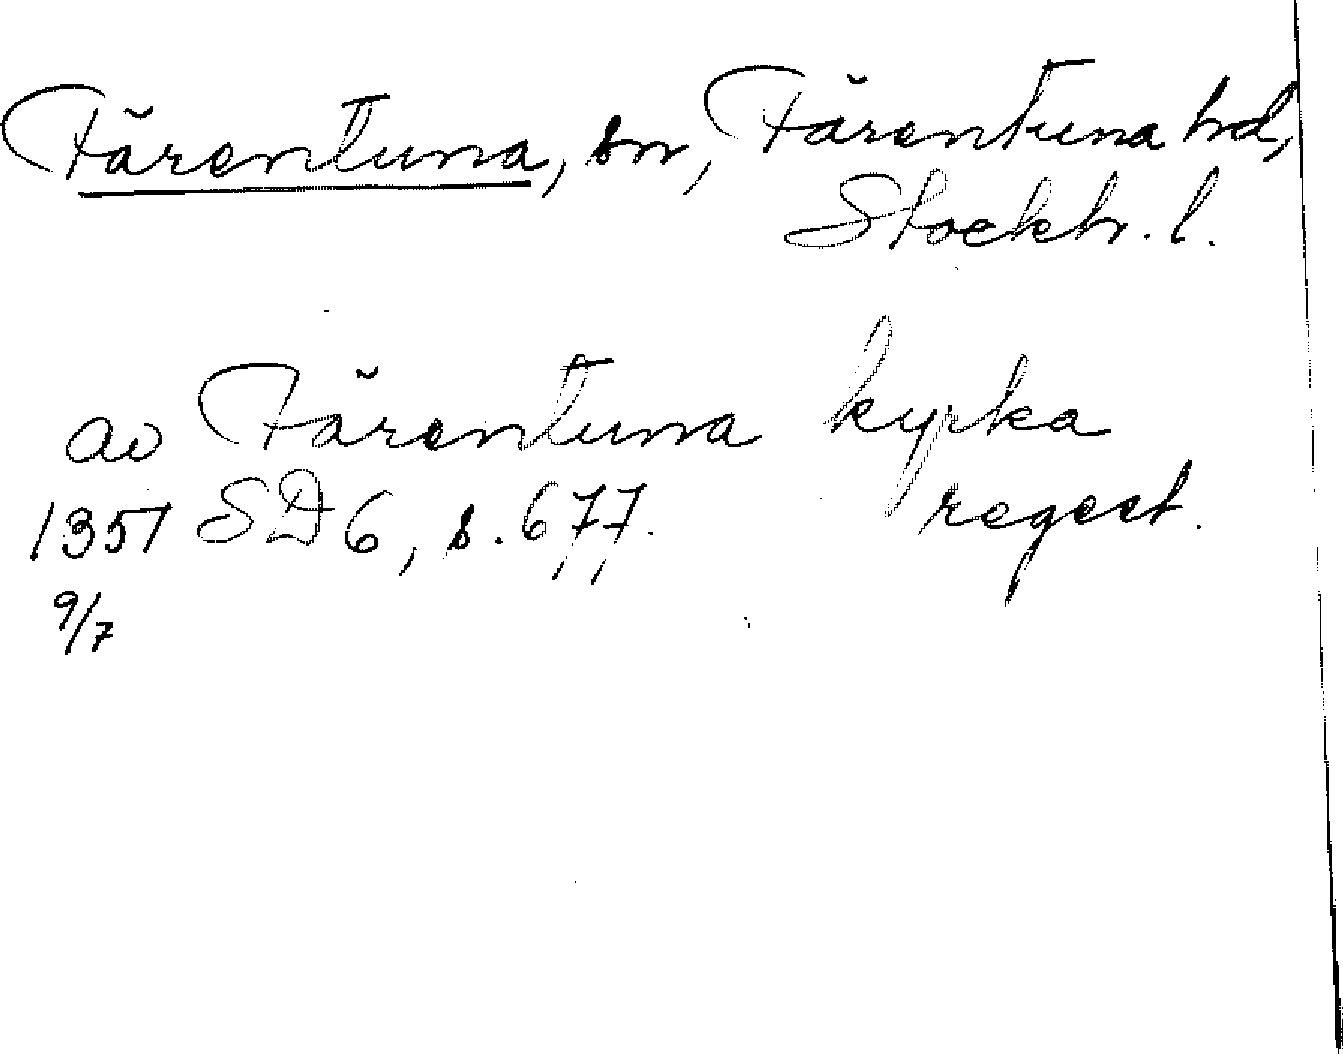 Färentuna, sn, Färentuna hd,
Stockh. l.
av Färentuna kyrka
1351 SD 6, s. 677. regest.
9/7